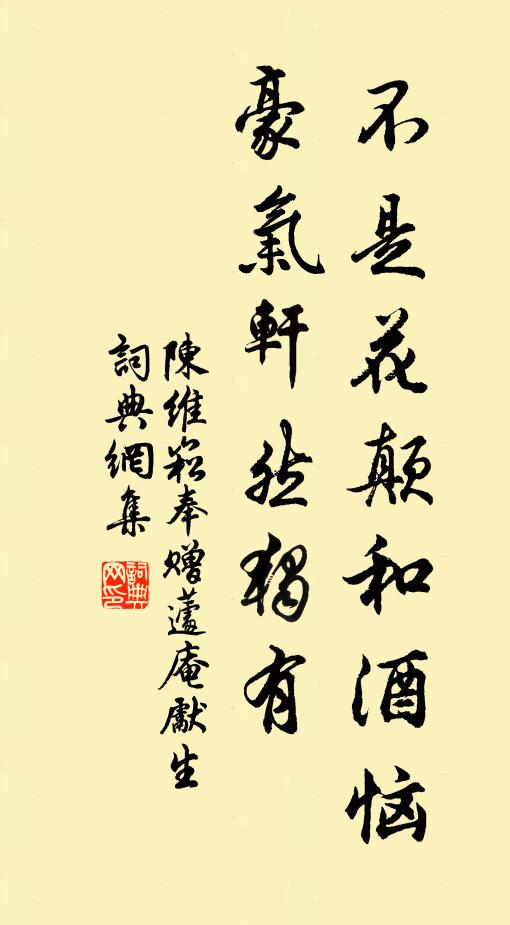 不是花颠和酒恼
豪氣軒然獨有
陳維崧奉贈蘧庵獻生
詞典網集
詞典网印